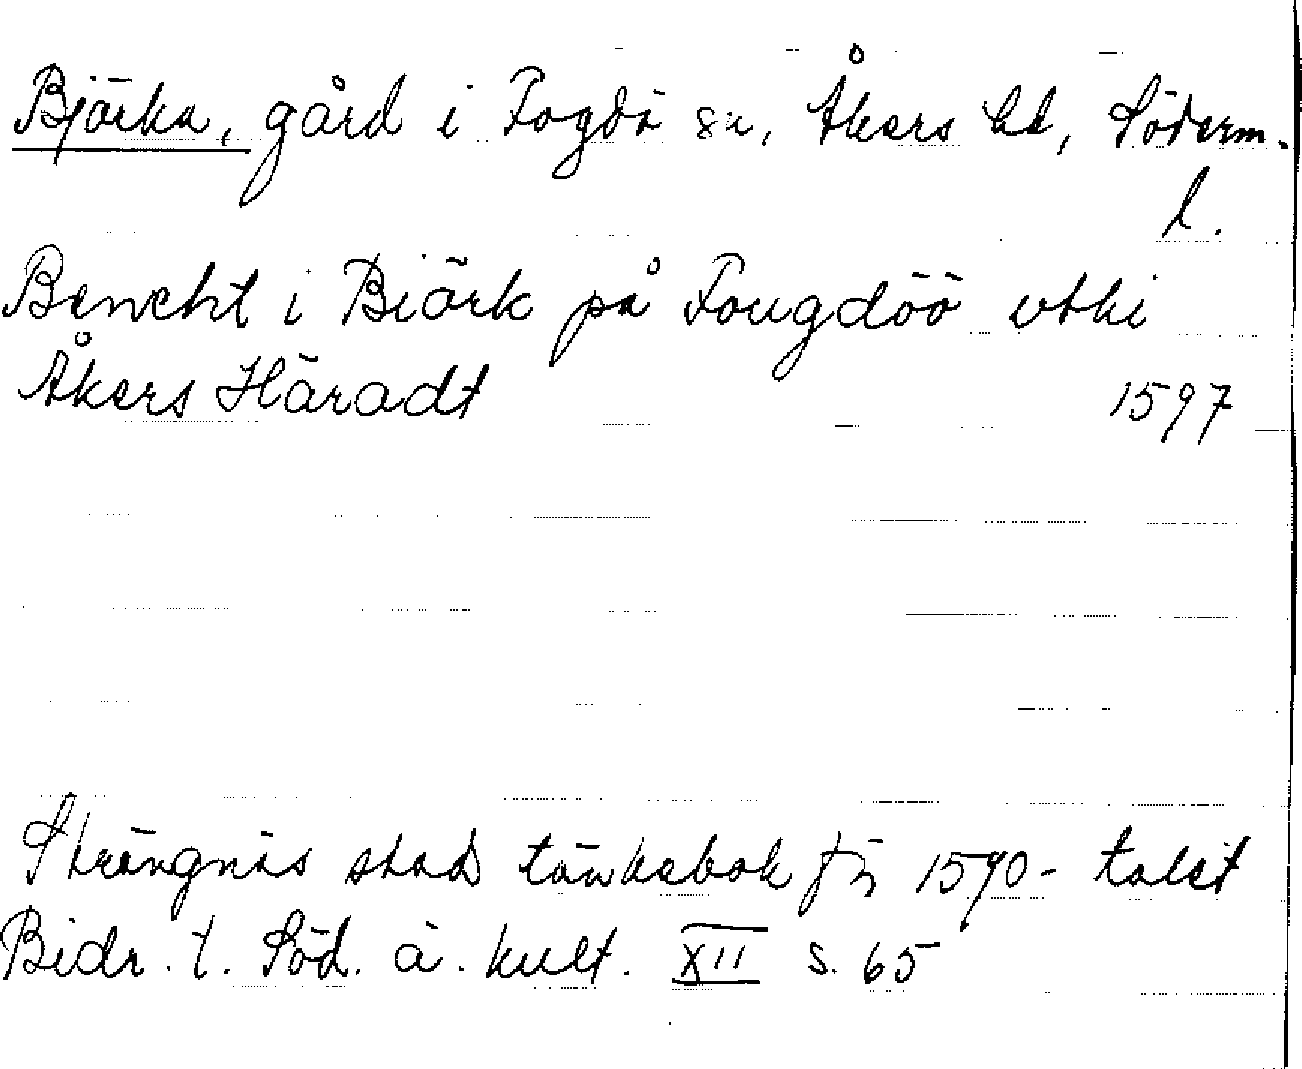 Björka, gård i Fogdö sn, Åkers hd, Söderm.
l.
Bencht i Biörk på Fougdöö vthi
Åkers Häradt 1597
Strängnäs stads tänkebok för 1590-talet
Bidr. t. Söd. ä. kult. XII s. 65